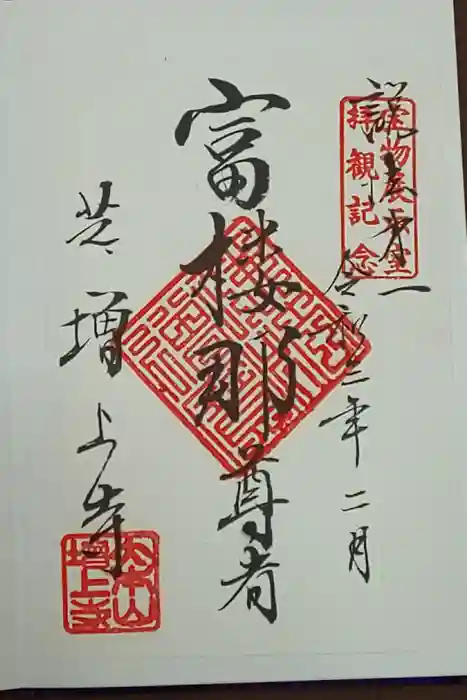 説法第一
令和三年二月
宝物展示室
拝観記念
富楼那尊者
芝
増上寺
大本山
増上寺